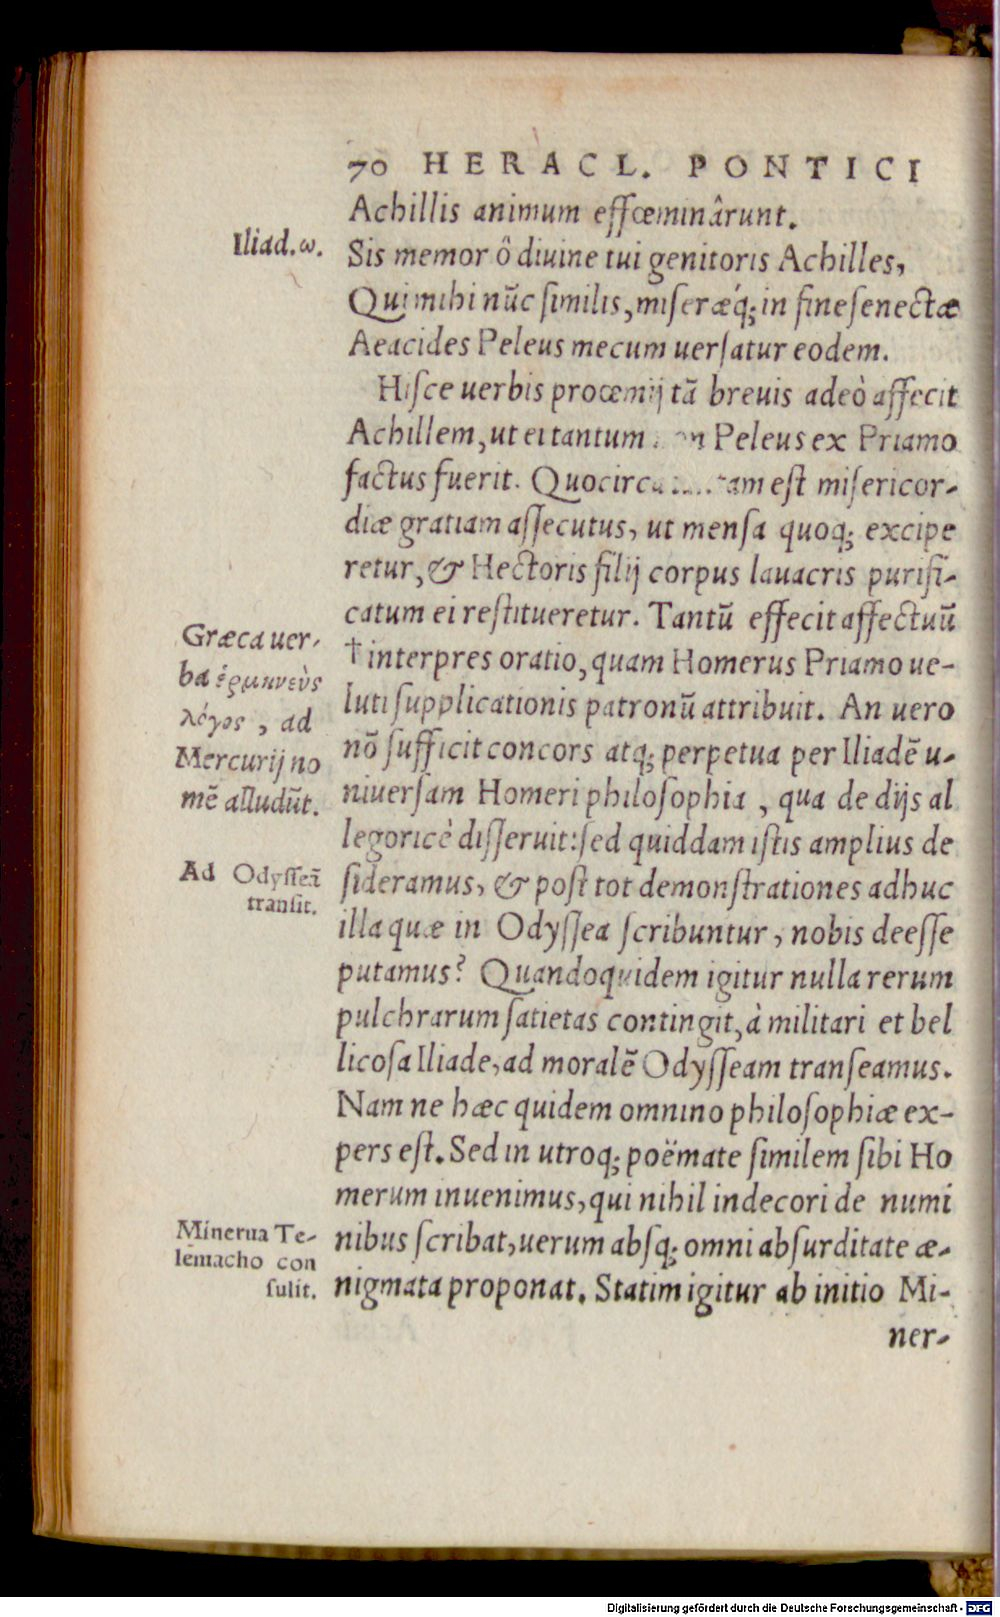 70 HERACL. PONTICI
Achillis animum effœminârunt.
Iliad. ω.
Sis memor ô diuine tui genitoris Achilles,
Qui mihi nũc similis, miseræq́; in fine senectæ
Aeacides Peleus mecum uersatur eodem.
Hisce uerbis proœmij tã breuis adeò affecit
Achillem, ut ei tantum Peleus ex Priamo
factus fuerit. Quocirca est misericor-
diæ gratiam assecutus, ut mensa quoq; excipe
retur, & Hectoris filij corpus lauacris purifi-
catum ei restitueretur. Tantũ effecit affectuũ
†interpres oratio, quam Homerus Priamo ue-
luti supplicationis patronũ attribuit. An uero
nõ sufficit concors atq; perpetua per Iliadẽ u-
niuersam Homeri philosophia, qua de dijs al
legoricè disseruit: sed quiddam istis amplius de
sideramus, & post tot demonstrationes adhuc
illa quæ in Odyssea scribuntur, nobis deesse
putamus? Quandoquidem igitur nulla rerum
pulchrarum satietas contingit, à militari et bel
licosa Iliade, ad moralẽ Odysseam transeamus.
Nam ne hæc quidem omnino philosophiæ ex-
pers est. Sed in utroq; poëmate similem sibi Ho
merum inuenimus, qui nihil indecori de numi
nibus scribat, uerum absq; omni absurditate æ-
nigmata proponat. Statim igitur ab initio Mi-
ner-
Græca uer-
ba ἑρμηνεὺς
λόγος, ad
Mercurij no
mẽ alludũt.
Ad Odysseã
transit.
Minerua Te-
lemacho con
sulit.
Digitalisierung gefördert durch die Deutsche Forschungsgemeinschaft - DFG